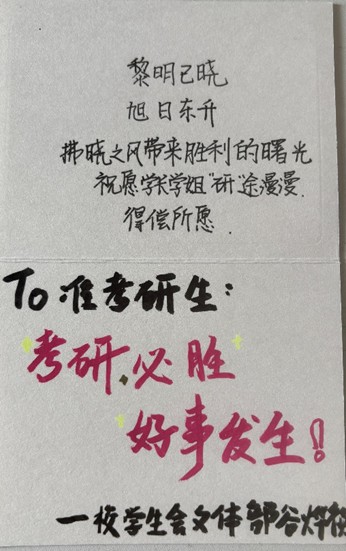 黎明已晓
旭日东升
拂晓之风带来胜利的曙光
祝愿学长学姐"研"途漫漫
得偿所愿
To 准考研生:
考研必胜
好事发生!
一校学生会文体部谷烨